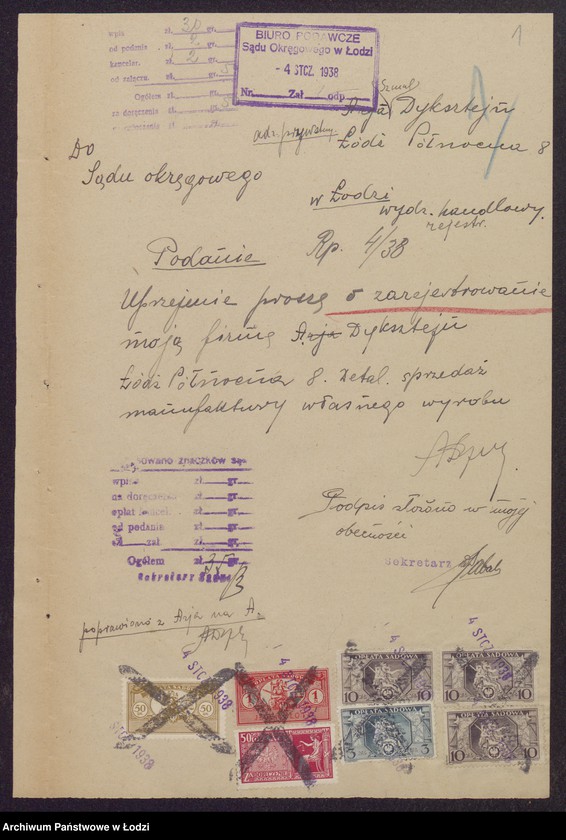 1
wpis zł. 30 gr.
od podania zł. 2 gr.
kancelar. zł. 2 gr.
od załączn. zł. gr. 5
Ogółem zł. gr.
za doręczenie zł. gr. 5
BIURO PODAWCZE
Sądu Okręgowego w Łodzi
- 4 STCZ. 1938
Nr. Zał. odp.
Szmul
Arja Dyksztejn
adw. przysztalny
Łódź Północna 8
Do
Sądu okręgowego
w Łodzi
wydz. handlowy.
rejestr.
Rp. 4/38
Podanie
Uprzejmie proszę o zarejestrowanie
moją firmę Arja Dyksztejn
Łódź Północna 8. Detal. sprzedaż
manufaktury własnego wyrobu
Podpis złożono w mojej
obecności
Sekretarz
kasowano znaczków są
wpisu zł. gr.
na doręczenie zł. gr.
opłat kancel. zł. gr.
od podania zł. gr.
zał. zł. gr.
Ogółem zł. 35 gr.
Sekretarz Sądu
poprawiono z Arja na A.
4 STCZ 1938
4 STCZ 1938
4 STCZ 1938
4 STCZ 1938
STCZ 1938
50 50
OPŁATA SĄDOWA
1 1
OPŁATA SĄDOWA
10 10
OPŁATA SĄDOWA
10 10
50
ZA DORĘCZENIE
OPŁATA SĄDOWA
3 3
OPŁATA SĄDOWA
10 10
Archiwum Państwowe w Łodzi